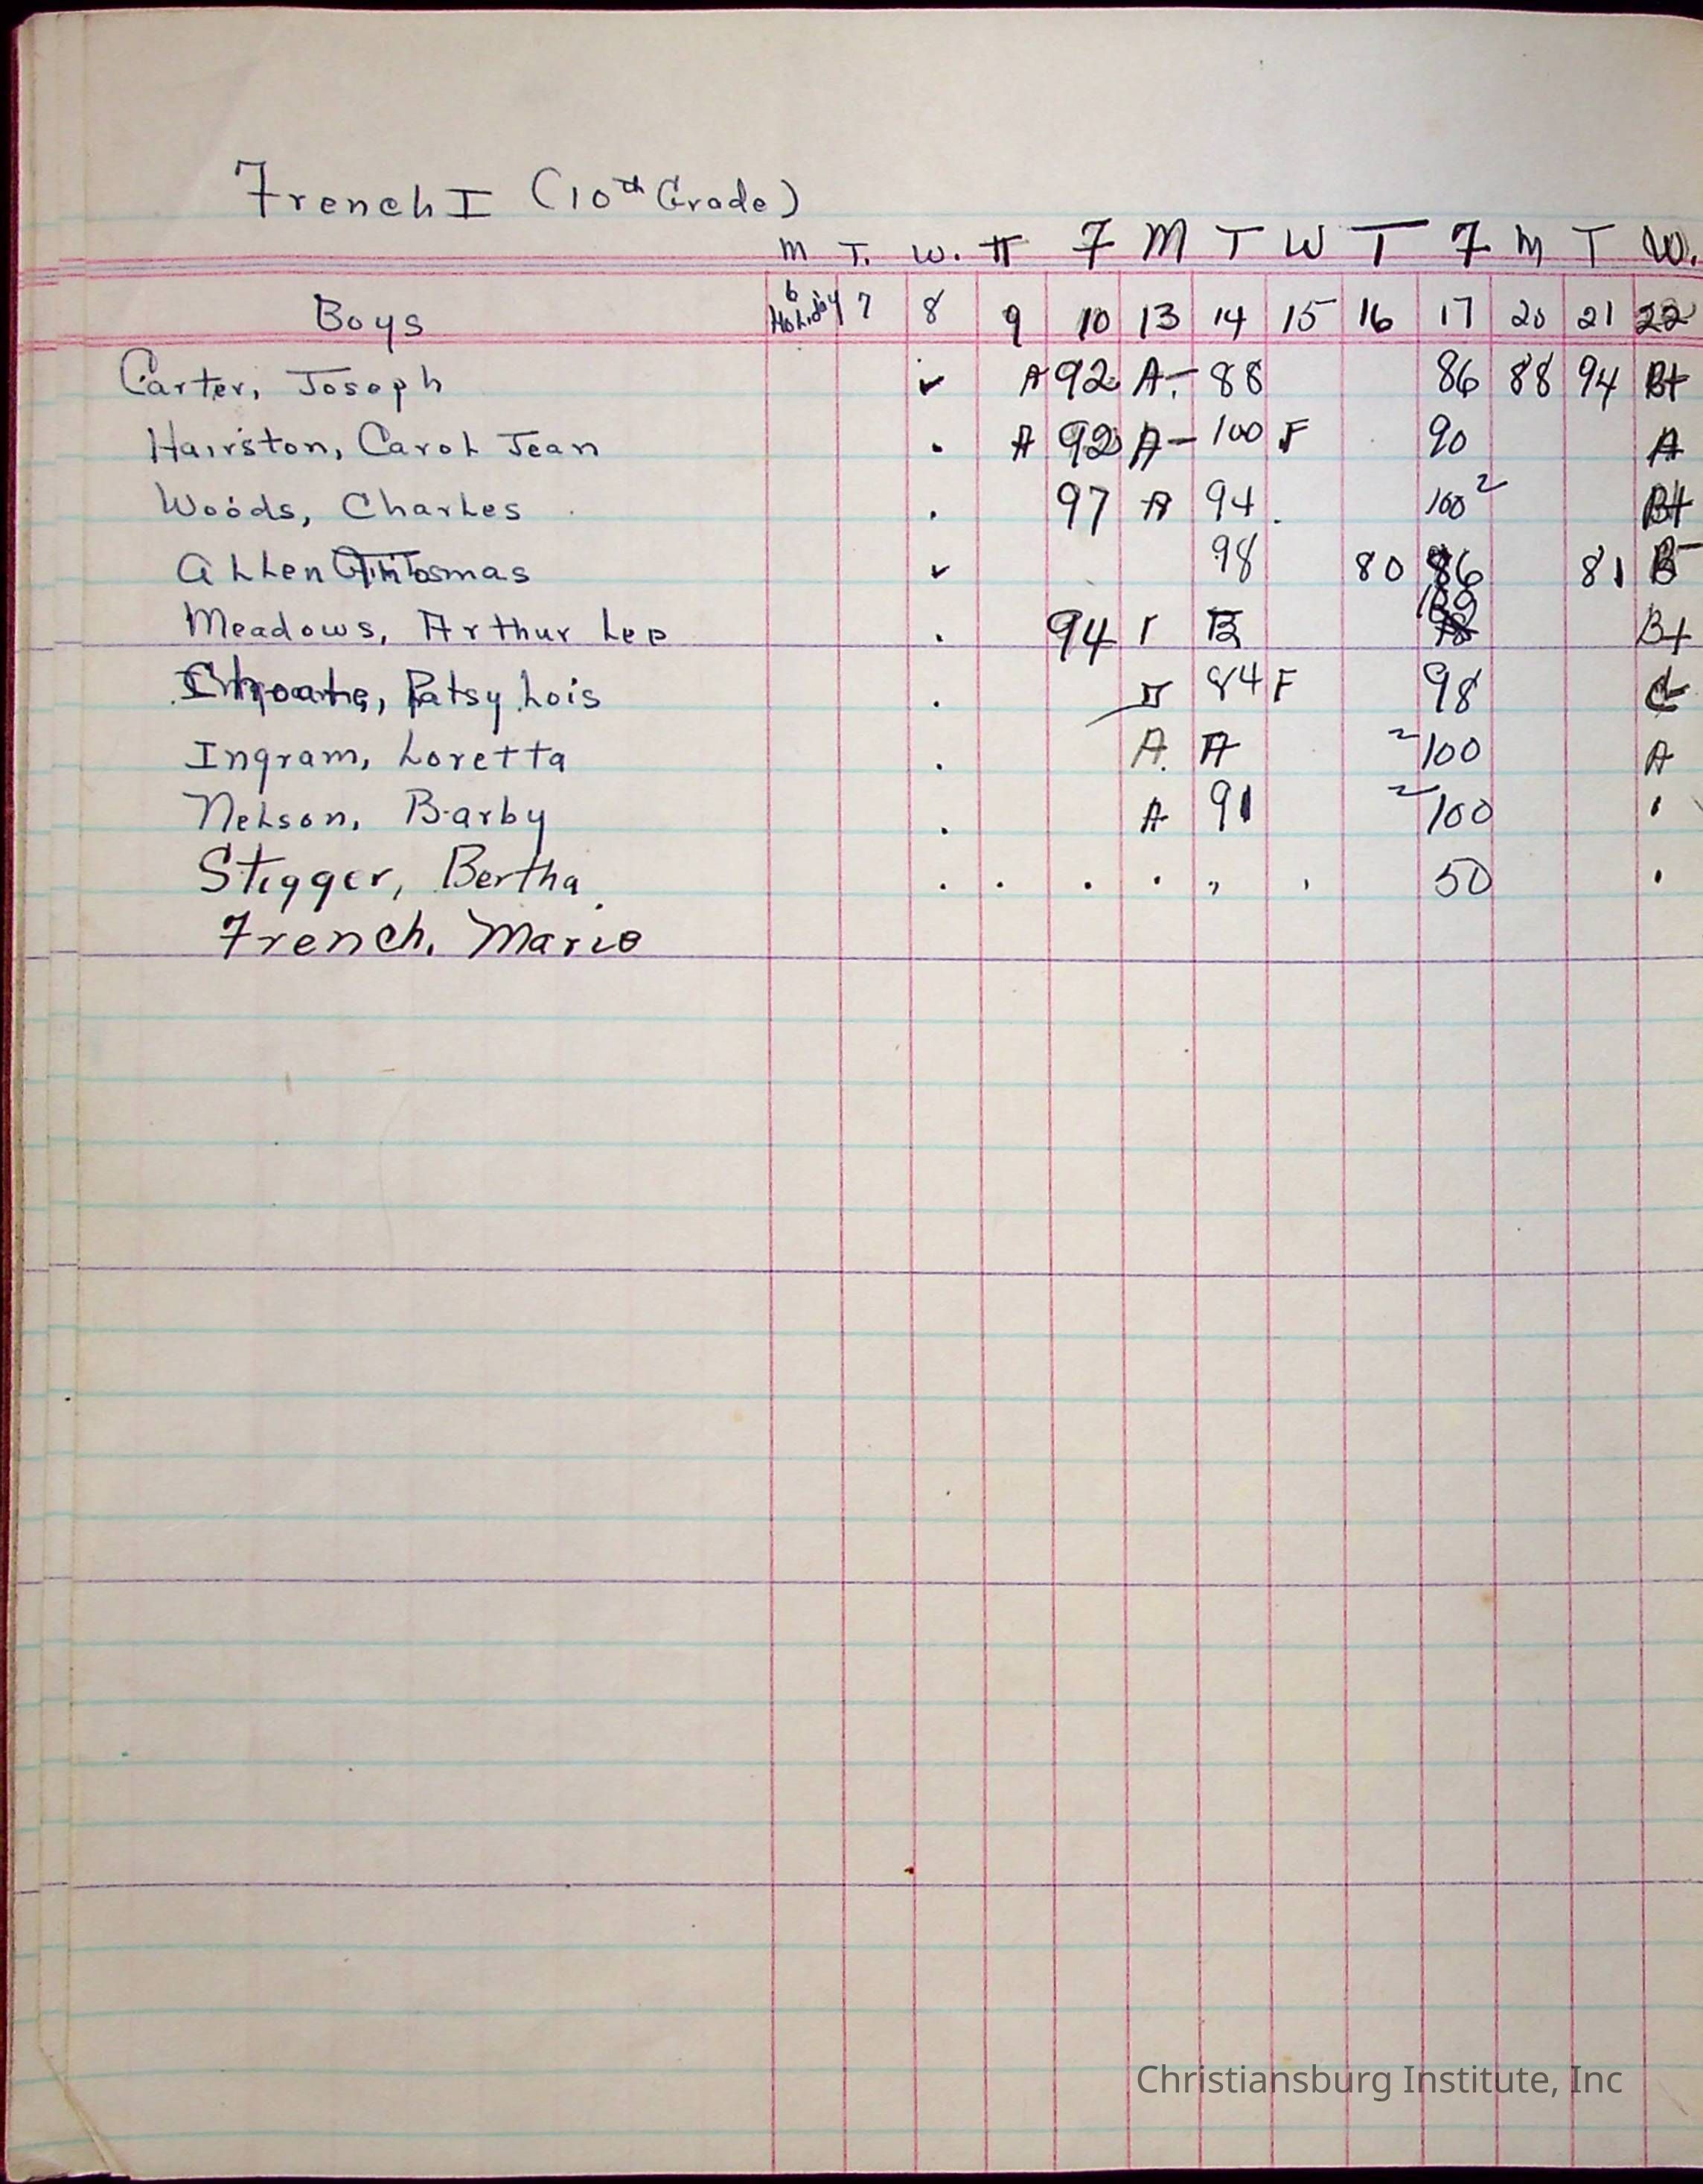 French I (10th Grade)
M T. W. TH F M T W T F M T W.
Boys 6 Holiday 7 8 9 10 13 14 15 16 17 20 21 22
Carter, Joseph ✓ A 92 A- 88 86 88 94 B+
Hairston, Carol Jean . A 92 A- 100 F 90 A
Woods, Charles . 97 A 94 . 100 2 B+
Allen ✓ 98 80 86 81 B-
Meadows, Arthur Lee . 94 B B+
Patsy Lois . 84 F 98
Ingram, Loretta . A. A 2 100 A
Nelson, Barby . A 91 2 100
Stigger, Bertha . . . . 50 .
French, Marie
Christiansburg Institute, Inc